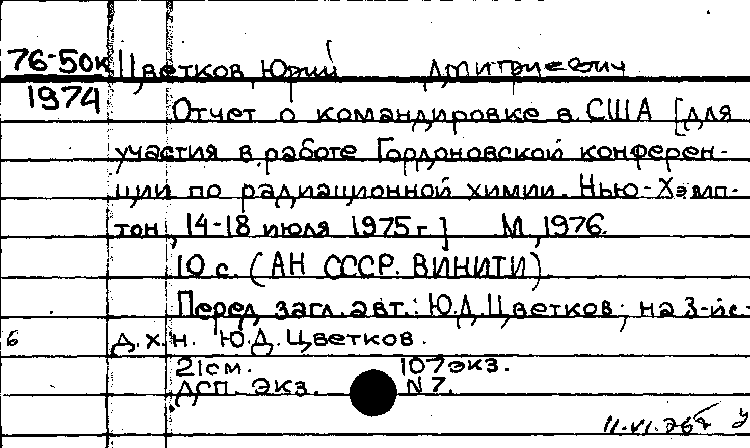 76-50к Цветков, Юрий Дмитриевич
1974
Отчет о командировке в США [для
участия в работе Гордоновской конферен-
ции по радиационной химии. Нью-Хэмп-
тон, 14-18 июля 1975 г.] М., 1976.
10 с. (АН СССР. ВИНИТИ).
Перед загл. авт.: Ю.Д. Цветков; на 3-й с.-
б д.х.н. Ю.Д. Цветков.
21 см. 107 экз.
ДСП. экз. N 7.
11.VI.76г